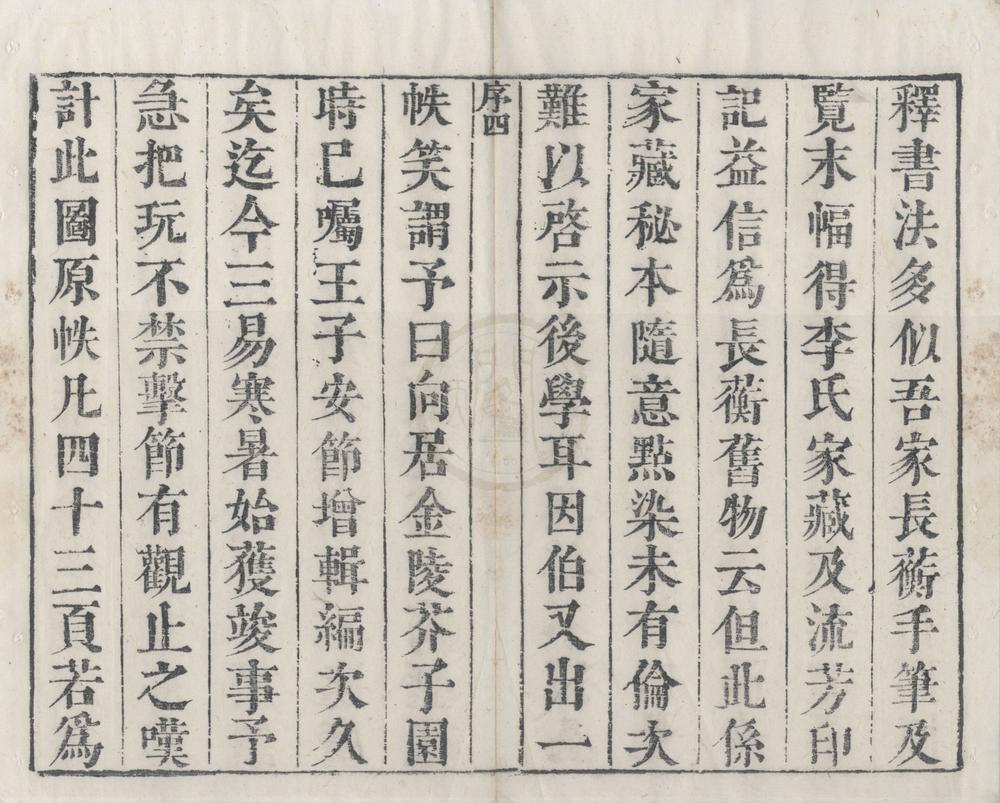 釋書法多似吾家長蘅手筆及
覽末幅得李氏家藏及流芳印
記益信爲長蘅舊物云但此係
家藏秘本隨意點染未有倫次
難以啓示後學耳因伯又出一
序四
帙笑謂予曰向居金陵芥子園
時已囑王子安節增輯編次久
矣迄今三易寒暑始獲竣事予
急把玩不禁擊節有觀止之嘆
計此圖原帙凡四十三頁若爲